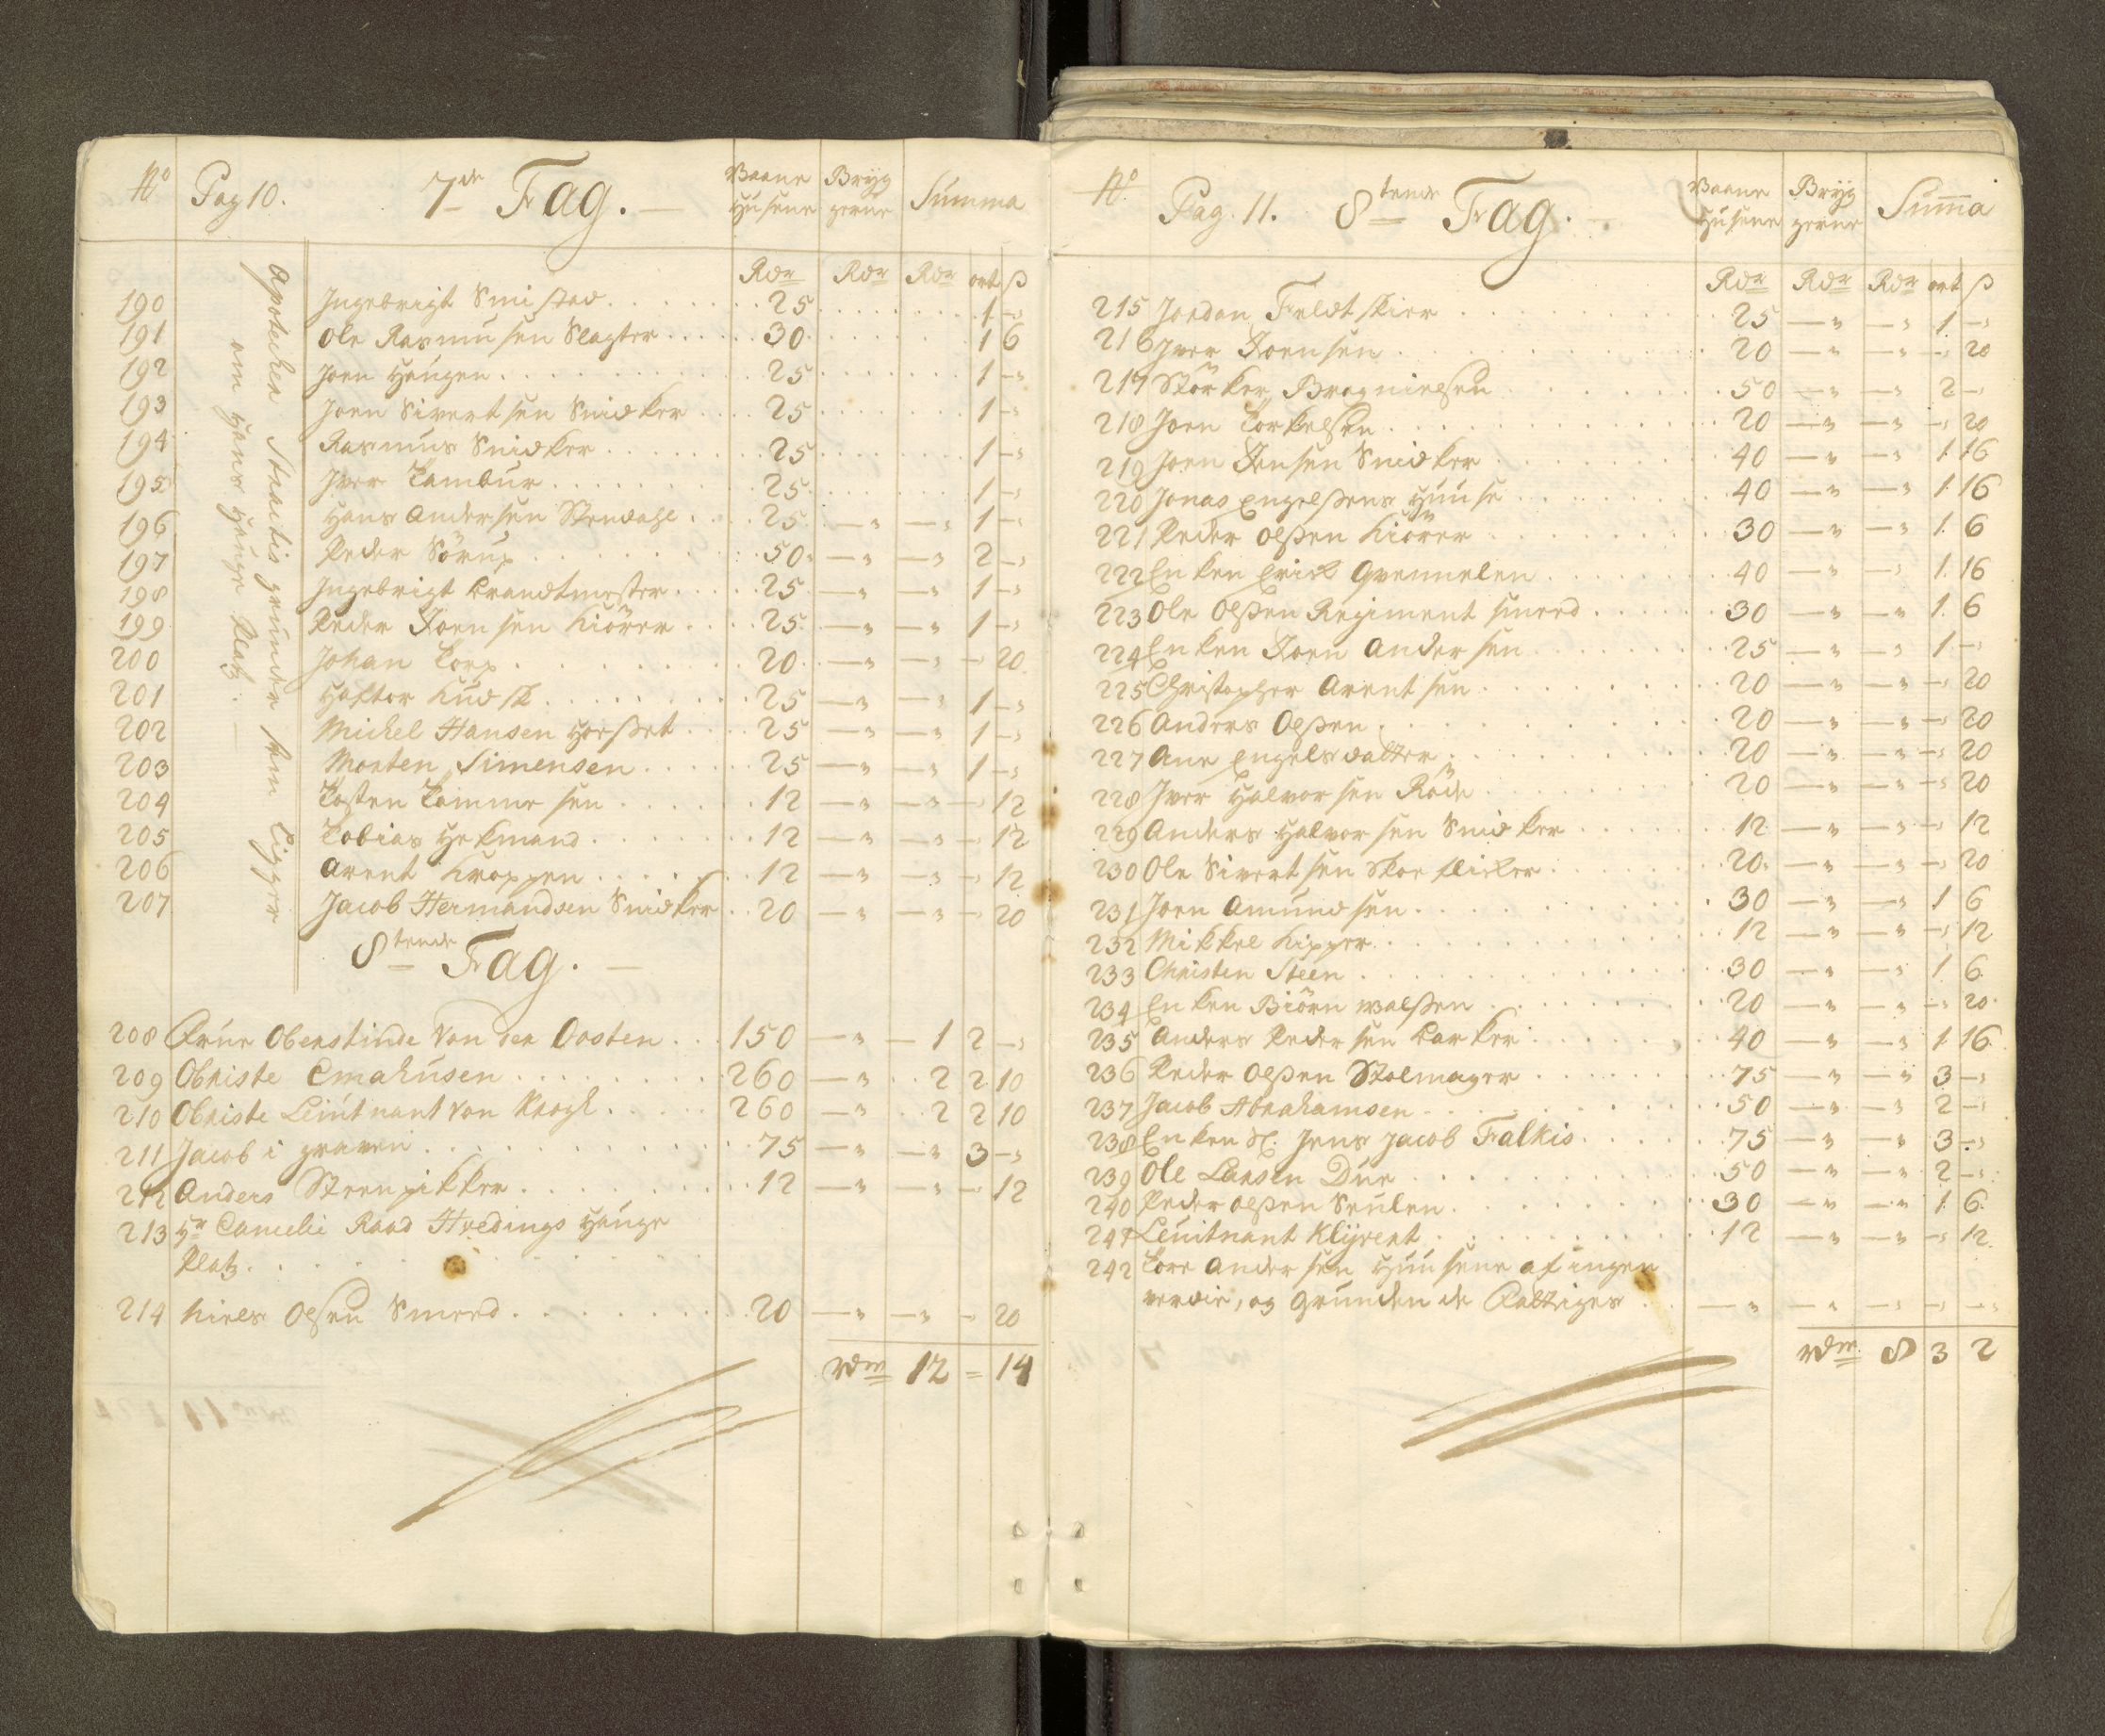 No Pag 10. 7de Fag. Vaane Husene Bryggerne Summa
Rdr Rdr Rdr ort ß
Apotecker Staatis grunde som ligger
om Hans Hauge Platz.
190 Ingebrigt Smistad 25 1 -"
191 Ole Rasmusen Slagter 30 1 6
192 Joen Haugen 25 1 -"
193 Joen Sivertsen Snidker 25 1 -"
194 Rasmus Snidker 25 1 -"
195 Iver Tambur 25 1 -"
196 Hans Andersen Stendahl 25 -" -" 1 -"
197 Peder Sörup 50 -" -" 2 -"
198 Ingebrigt Brandtmester 25 -" -" 1 -"
199 Peder Joensen Kiörer 25 -" -" 1 -"
200 Johan Torp 20 -" -" -" 20
201 Haftor Kudsk 25 -" -" 1 -"
202 Michel Hansen Horßet 25 -" -" 1 -"
203 Morten Simensen 25 -" -" 1 -"
204 Tosten Tommesen 12 -" -" -" 12
205 Tobias Hekmand 12 -" -" -" 12
206 Arent Kroppen 12 -" -" -" 12
207 Jacob Hermandsen Snidker 20 -" -" -" 20
8tende Fag.
208 Frue Oberstinde Von der Oosten 150 -" - 1 2 -"
209 Obriste Emahusen 260 -" 2 2 10
210 Obriste Leiutnant Von Krogh 260 -" 2 2 10
211 Jacob i graven 75 -" -" 3 -"
212 Anders Steenpikker 12 -" -" -" 12
213 Hr Cancelie Raad Hvedings Hauge
Platz
214 Niels Olsen Smeed 20 -" -" -" 20
rdr 12 = 14
No Pag. 11. 8tende Fag. Vaane Husene Bryggerne Suma
Rdr Rdr Rdr ort ß
215 Jordan Feldtskier 25 -" -" 1 -"
216 Iver Joensen 20 -" -" -" 20
217 Störker Brognielsen 50 -" -" 2 -"
218 Joen Torkelsen 20 -" -" -" 20
219 Joen Jensen Snidker 40 -" -" 1 16
220 Jonas Engelßens Huuse 40 -" -" 1 16
221 Peder Olßen Kiörer 30 -" -" 1 6
222 Enken Erick Qvennelen 40 -" -" 1 16
223 Ole Olßen Regiment smeed 30 -" -" 1 6
224 Enken Joen Andersen 25 -" -" 1 -"
225 Christopher Arentsen 20 -" -" -" 20
226 Anders Olßen 20 -" -" -" 20
227 Ane Engelsdatter 20 -" -" -" 20
228 Iver Halvorsen Röde 20 -" -" -" 20
229 Anders Halvorsen Snidker 12 -" -" -" 12
230 Ole Sivertsen Skoeflicker 20 -" -" -" 20
231 Joen Amundsen 30 -" -" 1 6
232 Mikkel Kipper 12 -" -" -" 12
233 Christen Steen 30 -" -" 1 6
234 Enken Biörn Walßen 20 -" -" -" 20
235 Anders Pedersen Barker 40 -" -" 1 16
236 Peder Olßen Stolmager 75 -" -" 3 -"
237 Jacob Abrahamsen 50 -" -" 2 -"
238 Enken Sl. Jens Jacob Falkis 75 -" -" 3 -"
239 Ole Larsen Due 50 -" -" 2 -"
240 Peder Olßen Seulen 30 -" -" 1 6
241 Leuitnant Klyvert 12 -" -" -" 12
242 Tore Andersen Huusene af ingen
verdie, og Grunden de Fattiges -" -" -" -" -"
rdr 8 3 2